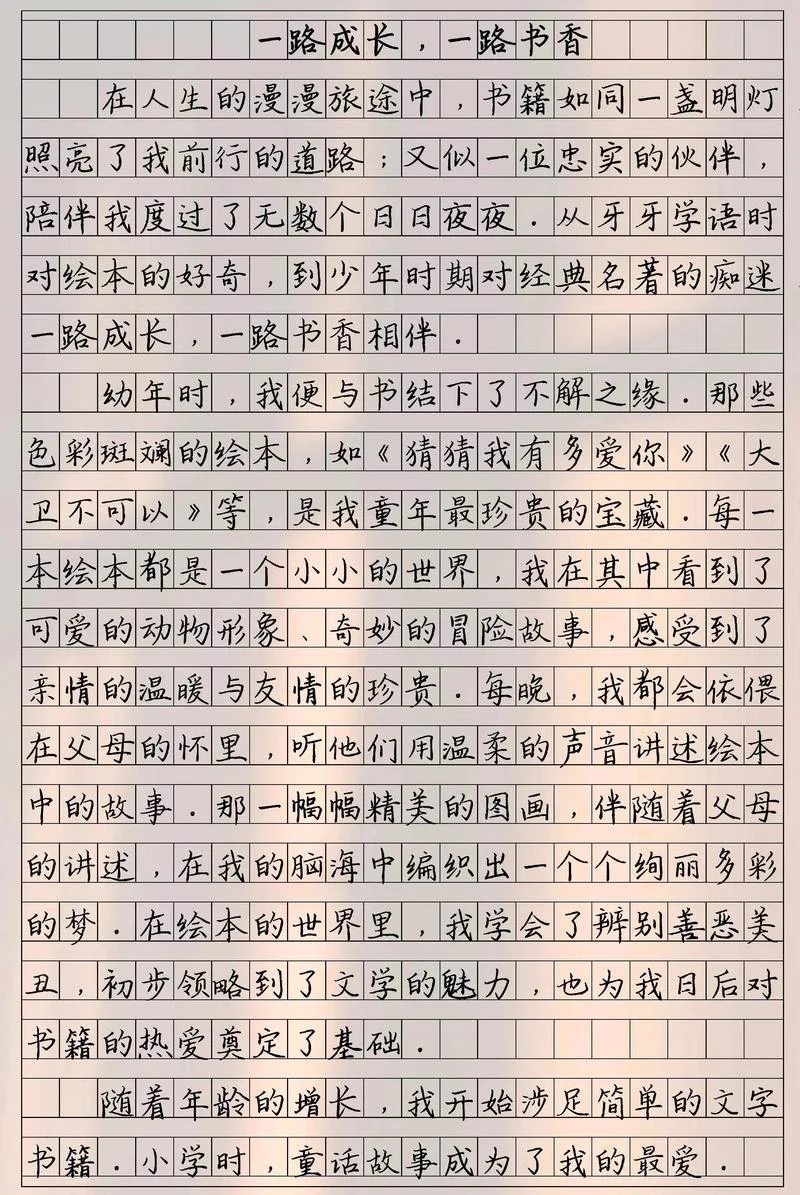 一路成长，一路书香
在人生的漫漫旅途中，书籍如同一盏明灯
照亮了我前行的道路；又似一位忠实的伙伴，
陪伴我度过了无数个日日夜夜．从牙牙学语时
对绘本的好奇，到少年时期对经典名著的痴迷
一路成长，一路书香相伴．
幼年时，我便与书结下了不解之缘．那些
色彩斑斓的绘本，如《猜猜我有多爱你》《大
卫不可以》等，是我童年最珍贵的宝藏．每一
本绘本都是一个小小的世界，我在其中看到了
可爱的动物形象、奇妙的冒险故事，感受到了
亲情的温暖与友情的珍贵．每晚，我都会依偎
在父母的怀里，听他们用温柔的声音讲述绘本
中的故事．那一幅幅精美的图画，伴随着父母
的讲述，在我的脑海中编织出一个个绚丽多彩
的梦．在绘本的世界里，我学会了辨别善恶美
丑，初步领略到了文学的魅力，也为我日后对
书籍的热爱奠定了基础．
随着年龄的增长，我开始涉足简单的文字
书籍．小学时，童话故事成为了我的最爱．